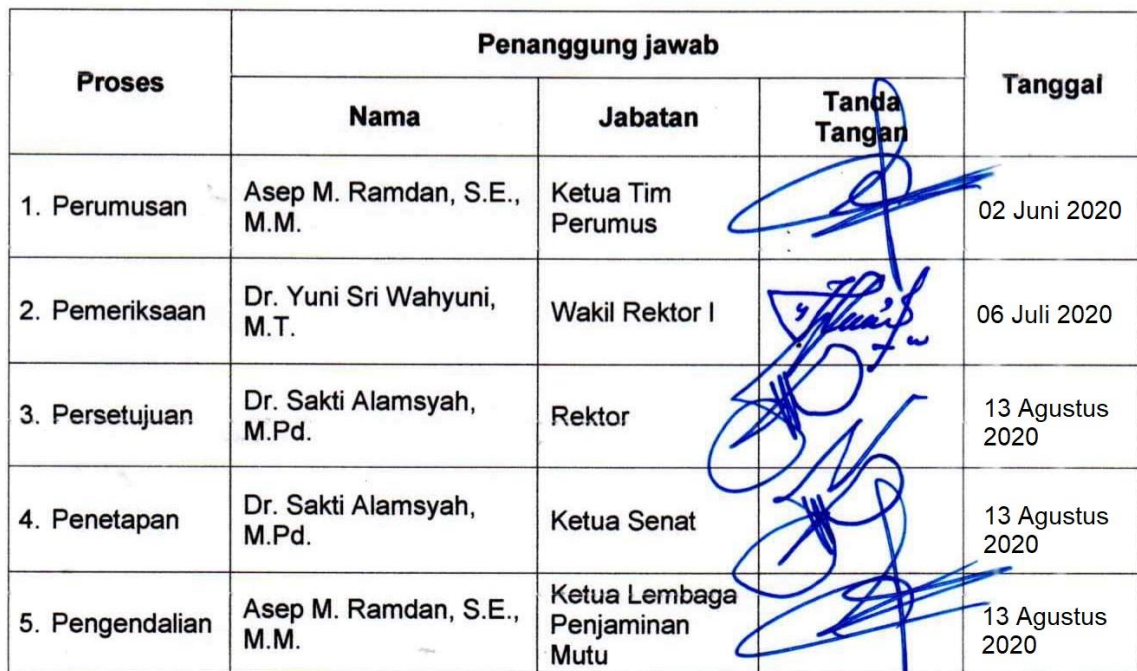 Proses
Penanggung jawab
Tanggal
Nama
Jabatan
Tanda
Tangan
1. Perumusan
Asep M. Ramdan, S.E.,
M.M.
Ketua Tim
Perumus
02 Juni 2020
2. Pemeriksaan
Dr. Yuni Sri Wahyuni,
M.T.
Wakil Rektor I
06 Juli 2020
3. Persetujuan
Dr. Sakti Alamsyah,
M.Pd.
Rektor
13 Agustus
2020
4. Penetapan
Dr. Sakti Alamsyah,
M.Pd.
Ketua Senat
13 Agustus
2020
5. Pengendalian
Asep M. Ramdan, S.E.,
M.M.
Ketua Lembaga
Penjaminan
Mutu
13 Agustus
2020